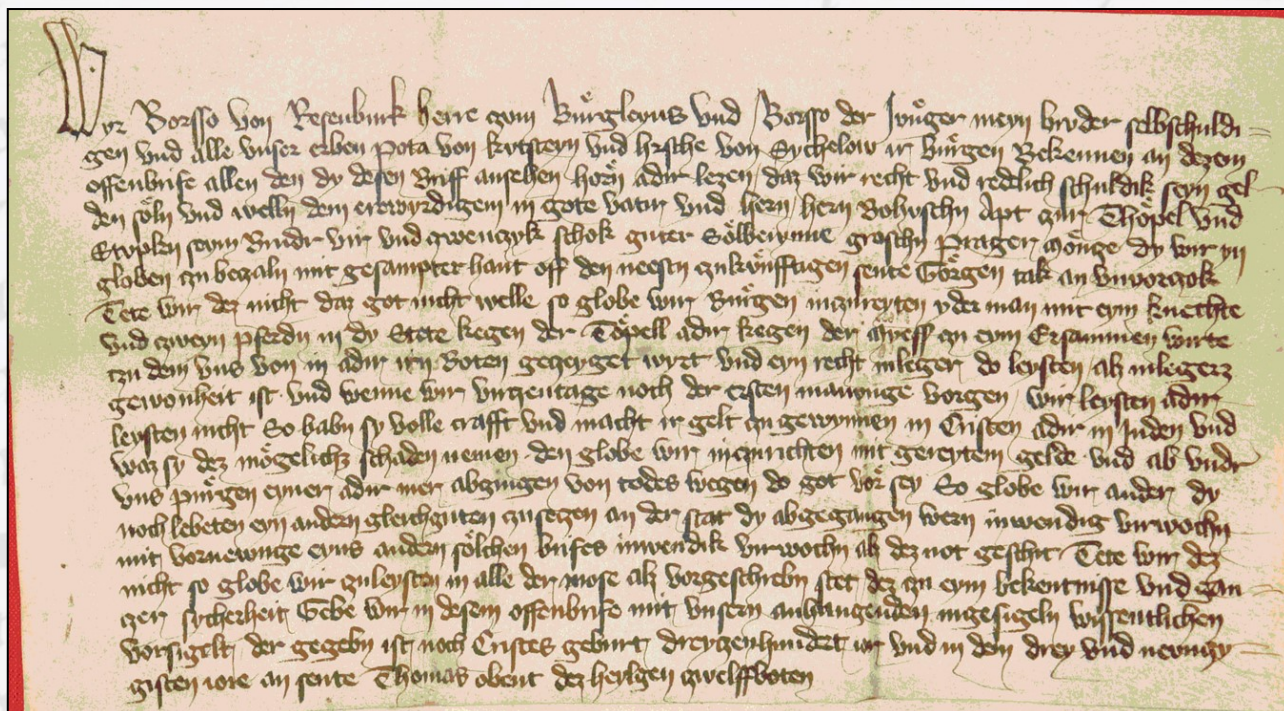 Wyr Borsso von Resenburk herre czum Burgleyns vnd Borsso der Junger meyn bruder selbschuldi=
gen vnd alle vnser erben Pota von vnd hrsche von Sychelow ir burgen Bekennen an dezem
offenbrife allen den dy desen Briff ansehen horn adir lezen daz wir recht vnd redlich schuldik seyn gel
den soln vnd welln dem erewyrdigem in gote vatir vnd hern hern Bohuschn Apt czur Thopel vnd
seym Brudr vir vnd czwenczyk schok guter Silberynne groschn Prager Moncze dy wir yn
globen czu beczaln mit gesampter hant off den neestn czukunfftagen sente Gorgen tak an vnvorczok
Tete wir dez nicht daz got nicht welle so globe wir Burgen inczureyten yder man mit eym knechte
vnd czweyn pferdn in dy Stete kegen der Topell adir kegen der Myess czu eym Ersammen wirte
czu dem vns von in adir irn Boten geczeyget wyrt vnd eyn recht inleger do leysten alz inlegerz
gewonheit ist vnd wenne wir virczentage noch der ersten manunge vorgen wir leysten adir
leysten nicht So habn sy volle crafft vnd macht ir gelt czu gewynnen in Cristen adir in Juden vnd
waz sy dez mogelichz schaden nemen den globe wir inczurichten mit gereytem gelde vnd ab vndr
vns purgen eyner adir mer abgingen von todes wegen do got vor sey So globe wir ander dy
noch lebeten eyn andern gleichguten czu seczen an der stat dy abgegangen wern inwendig virwochn
mit vornewunge eyns andern solchen brifes inwendik virwochn ab dez not geschit Tete wir dez
nicht so globe wir czuleysten in alle der mose alz vorgeschrebn stet dez czu eym bekentnisse vnd gan
czer sycherheit Gebe wir in desem offenbrife mit vnsern anhangenden ingesigeln wissentlichen
vorsigelt der gegebn ist noch Cristes geburt dreyczenhundert iar vnd in dem drey vnd newnczy=
gisten iore an sente Thomas obent dez heylgen czwelffboten